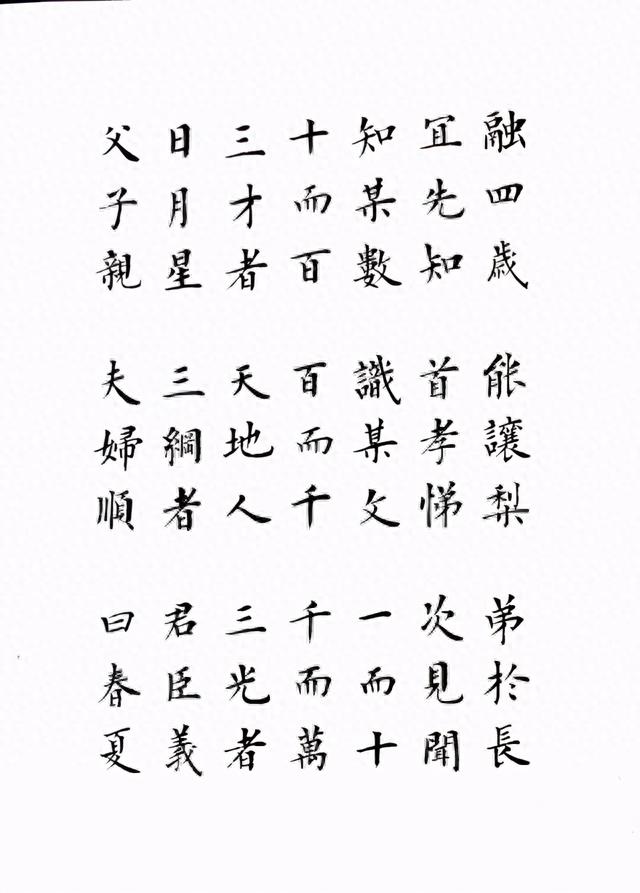 融四歲 能讓梨 弟於長
宜先知 首孝悌 次見聞
知某數 識某文 一而十
十而百 百而千 千而萬
三才者 天地人 三光者
日月星 三綱者 君臣義
父子親 夫婦順 曰春夏